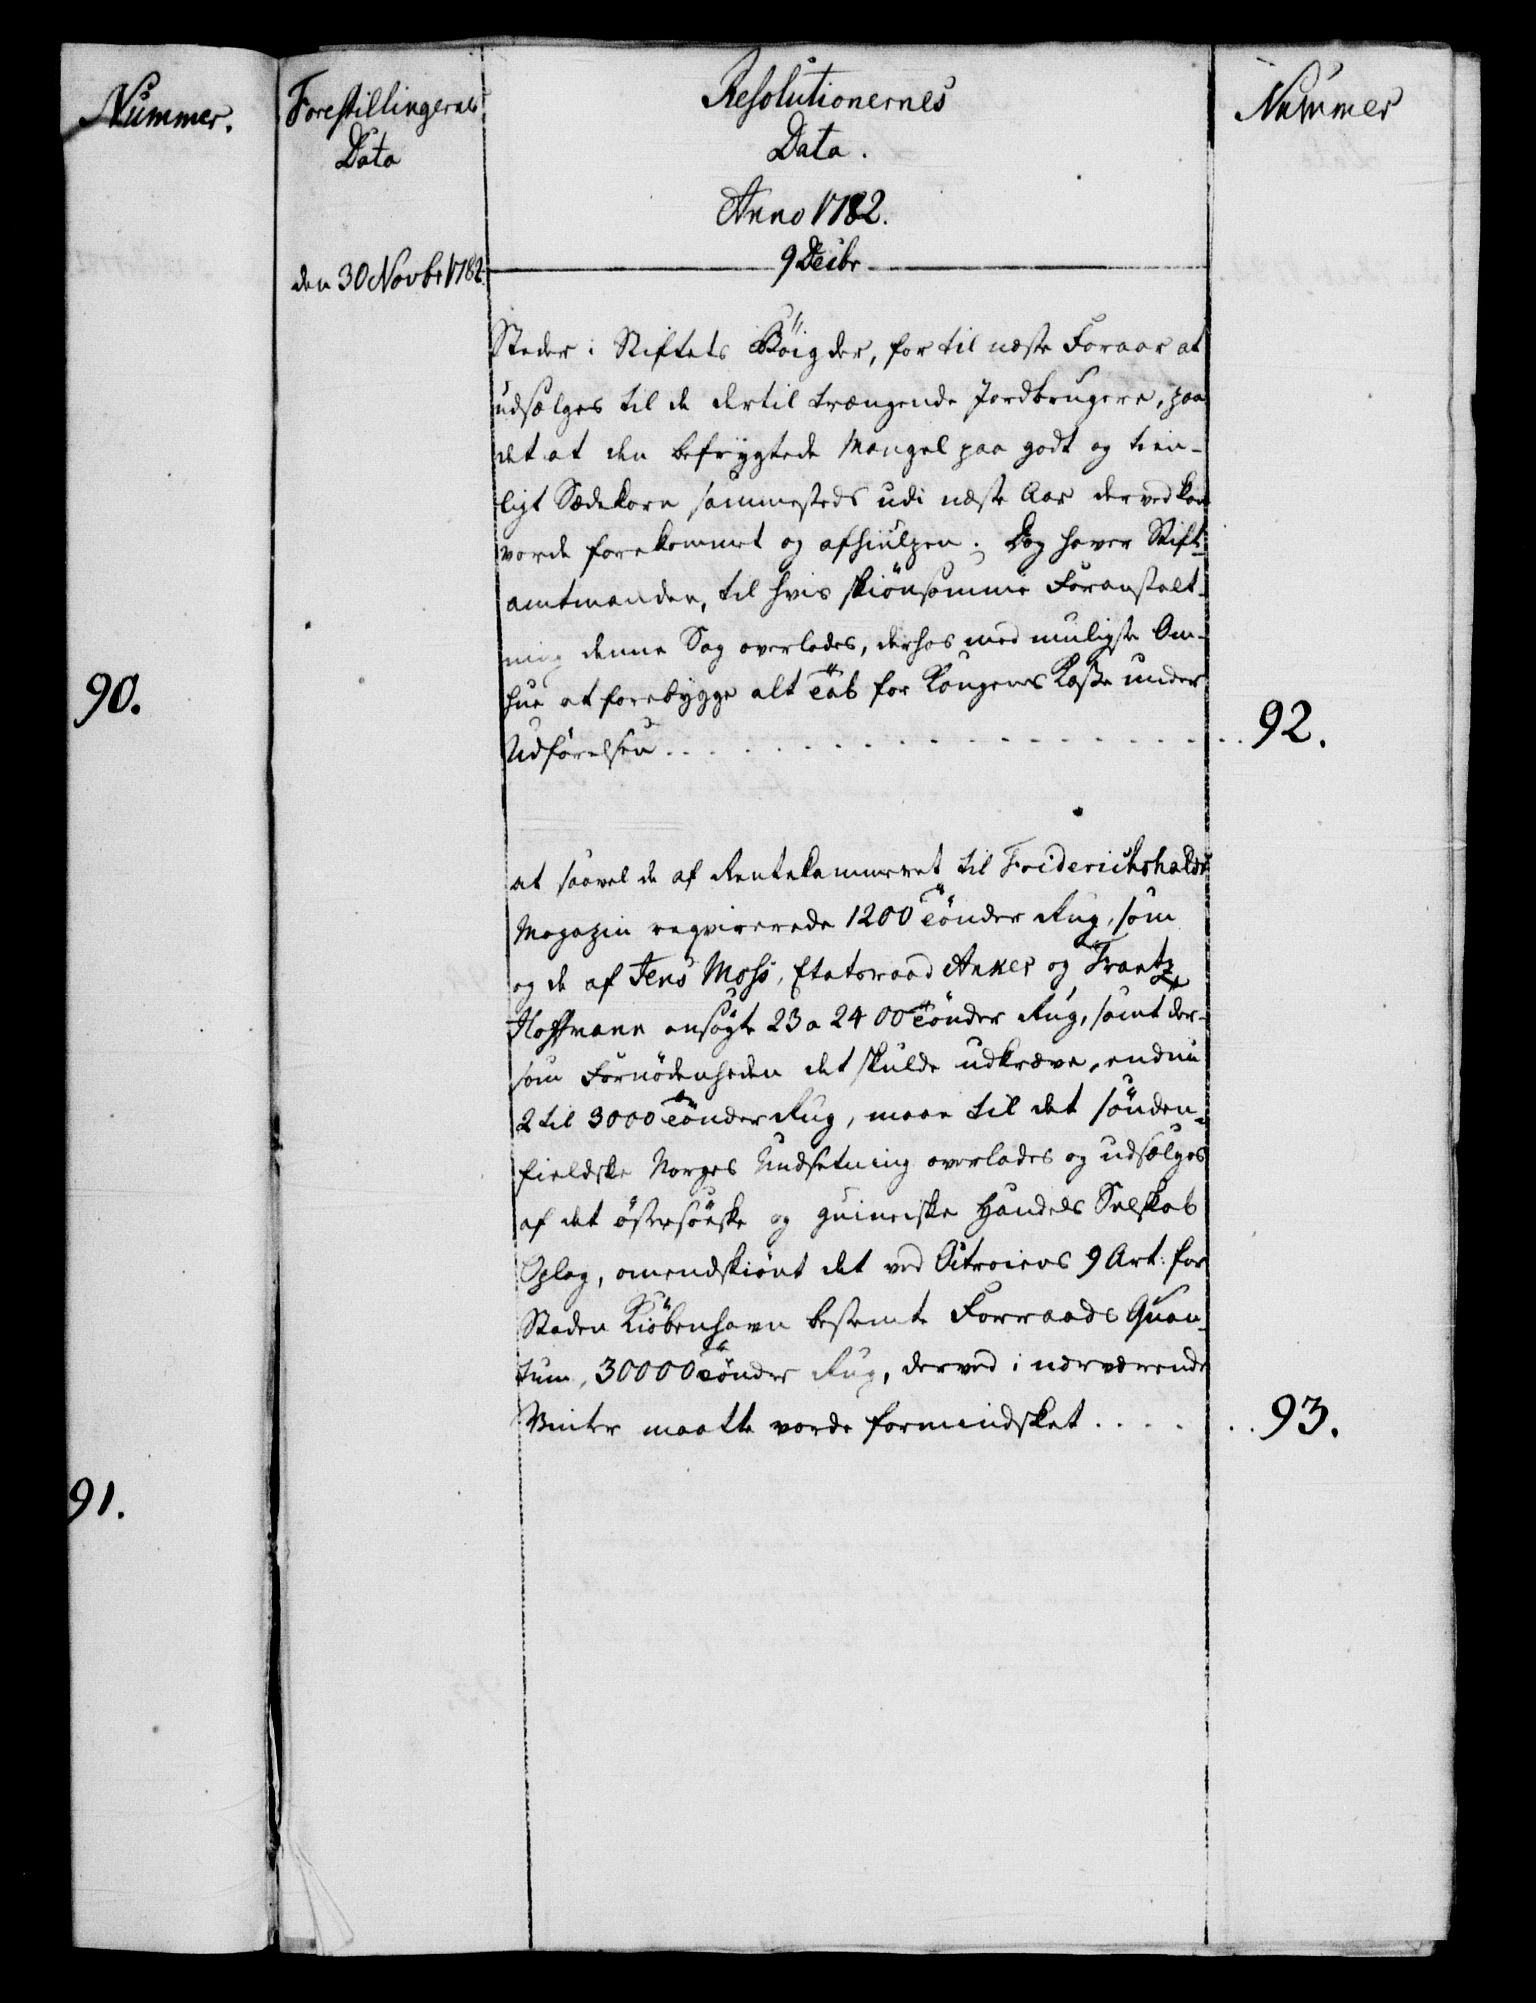 Nummer.
90.
91.
Forestillingernes
Data
den 30 Novbr 1782
Resolutionernes
Data.
Anno 1782.
9 Decbr
Steder i Stiftets Böigder, for til næste Foraar at
udsælges til de dertil trængende Jordbrugere, paa
det at den befrygtede Mangel paa godt og tien-
ligt Sædekorn sammesteds udi næste Aar derved kan
vorde forekommet og afhiulpen. Dog haver Stift-
amtmanden, til hvis skiönsomme Foranstalt-
ning denne Sag overlades, derhos med muligste Om-
hue at forebygge alt Tab for Kongens Kasse under
Udförelsen
92.
at saavel de af Rentekammeret til Friderichshalds
Magazin reqvirerede 1200 Tönder Rug, som
og de af Jens Moss, Etatsraad Anker og Frantz
Hoffmann ansögte 23 a 2400 Tönder Rug, samt der-
som Fornödenheden det skulde udkræve, endnu
2 til 3000 Tönder Rug, maae til det sönden-
fieldske Norges Undsetning overlades og udsælges
af det östersöeske og guineiske Handels Selskab
Oplag, omendskiönt det ved Octroiens 9 Art: for
Staden Kiöbenhavn bestemte Forraads Quan-
tum, 30000 Tönder Rug, derved i nærværende
Vinter maatte vorde formindsket
93.
Nummer